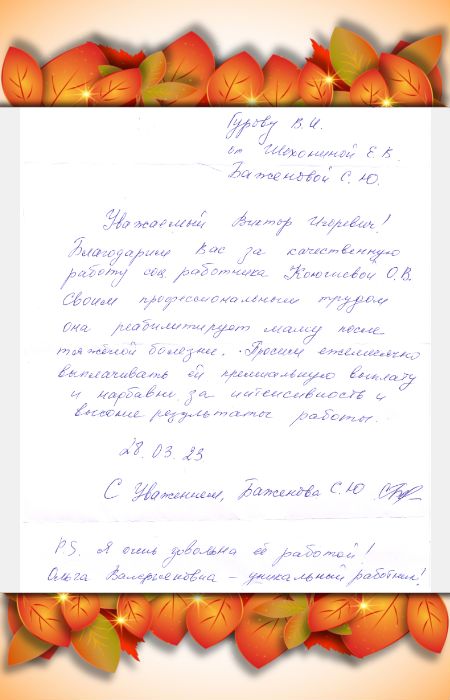 Гурову В.И.
от Шехониной Е.В.
Баженовой С.Ю.
Уважаемый Виктор Игоревич!
Благодарим Вас за качественную
работу соц работника О.В.
Своим профессиональным трудом
она реабилитирует маму после
тяжёлой болезни. Просим ежемесячно
выплачивать ей премиальную выплату
и надбавки за интенсивность и
высокие результаты работы.
28.03.23
С Уважением, Баженова С.Ю
P.S. Я очень довольна её работой!
Ольга Валерьевна – уникальный работник!